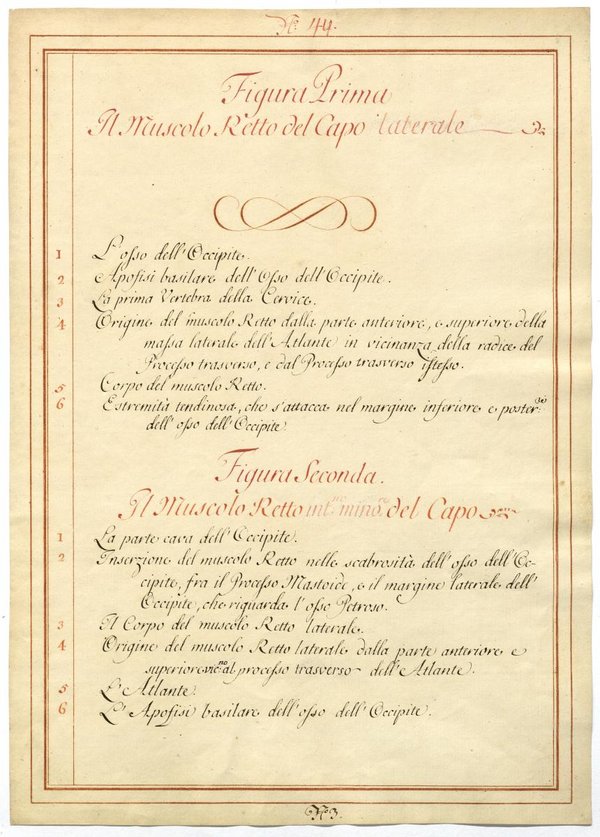 N.º 44.
Figura Prima
Il Muscolo Retto del Capo laterale
1 L'osso dell'Occipite.
2 Apofisi basilare dell'Osso dell'Occipite.
3 La prima Vertebra della Cervice.
4 Origine del muscolo Retto dalla parte anteriore, e superiore della
massa laterale dell'Atlante in vicinanza della radice del
Processo trasverso, e dal Processo trasverso istesso.
5 Corpo del muscolo Retto.
6 Estremità tendinosa, che s'attacca nel margine inferiore e poster.re
dell'osso dell'Occipite
Figura Seconda.
Il Muscolo Retto int.re mino.re del Capo
1 La parte cava dell'Occipite.
2 Inserzione del muscolo Retto nelle scabrosità dell'osso dell'Oc-
cipite, fra il Processo Mastoide, e il margine laterale dell'
Occipite, che riguarda l'osso Petroso.
3 Il Corpo del muscolo Retto laterale.
4 Origine del muscolo Retto laterale dalla parte anteriore e
superiore vic.no al processo trasverso dell'Atlante.
5 L'Atlante.
6 L'Apofisi basilare dell'osso dell'Occipite.